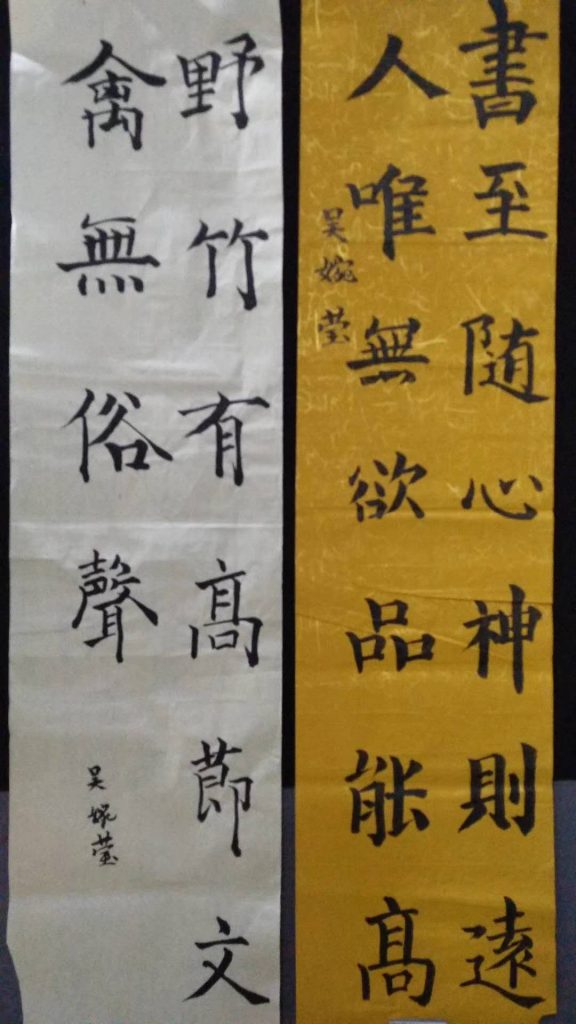 書至随心神則遠
人唯無欲品能高
吴婉莹
野竹有高莭文
禽無俗聲
吴婉莹